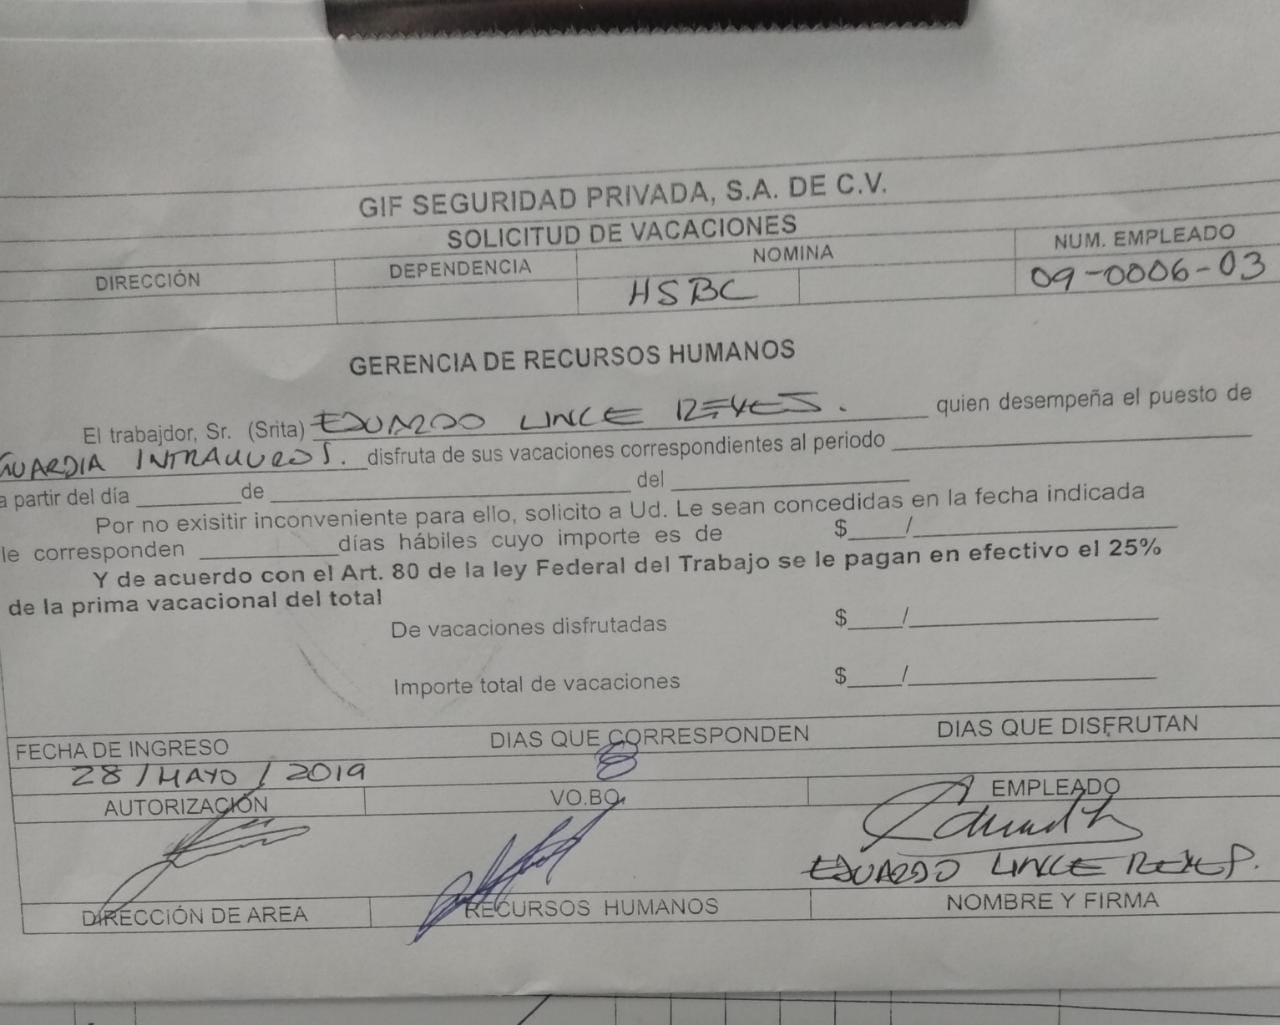 GIF SEGURIDAD PRIVADA, S.A. DE C.V.
SOLICITUD DE VACACIONES
DIRECCIÓN DEPENDENCIA NOMINA NUM. EMPLEADO
HSBC 09-0006-03
GERENCIA DE RECURSOS HUMANOS
El trabajdor, Sr. (Srita) EDUARDO LINCE REYES. quien desempeña el puesto de
GUARDIA INTRAMUROS. disfruta de sus vacaciones correspondientes al periodo
a partir del día de del
Por no exisitir inconveniente para ello, solicito a Ud. Le sean concedidas en la fecha indicada
le corresponden días hábiles cuyo importe es de $ /
Y de acuerdo con el Art. 80 de la ley Federal del Trabajo se le pagan en efectivo el 25%
de la prima vacacional del total
De vacaciones disfrutadas $ /
Importe total de vacaciones $ /
FECHA DE INGRESO DIAS QUE CORRESPONDEN DIAS QUE DISFRUTAN
28/MAYO/2019 8
AUTORIZACIÓN VO.BO. EMPLEADO
EDUARDO LINCE REYES.
DIRECCIÓN DE AREA RECURSOS HUMANOS NOMBRE Y FIRMA